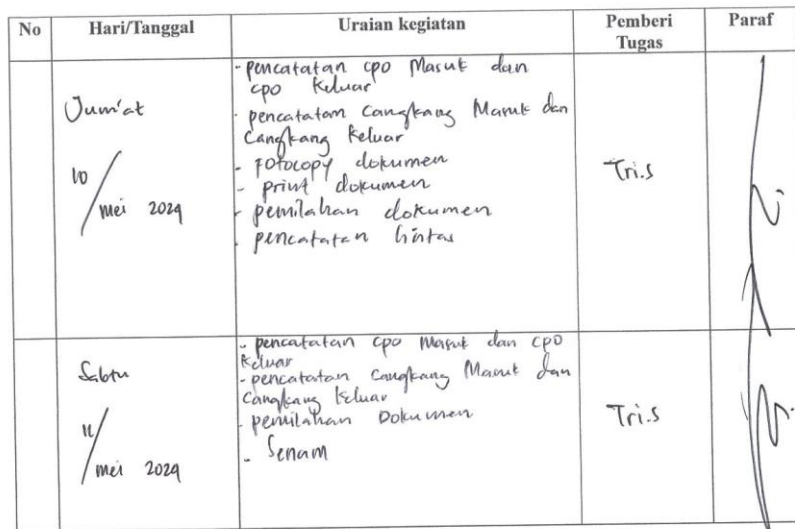 No Hari/Tanggal Uraian kegiatan Pemberi Tugas Paraf
Jum'at
10/mei 2024
- pencatatan cpo Masuk dan
cpo Keluar
- pencatatan Cangkang Masuk dan
Cangkang Keluar
- fotocopy dokumen
- print dokumen
- pemilahan dokumen
- pencatatan
Tri.S
Sabtu
11/mei 2024
- pencatatan cpo Masuk dan cpo
Keluar
- pencatatan Cangkang Masuk dan
Cangkang Keluar
- pemilahan Dokumen
- Senam
Tri.S